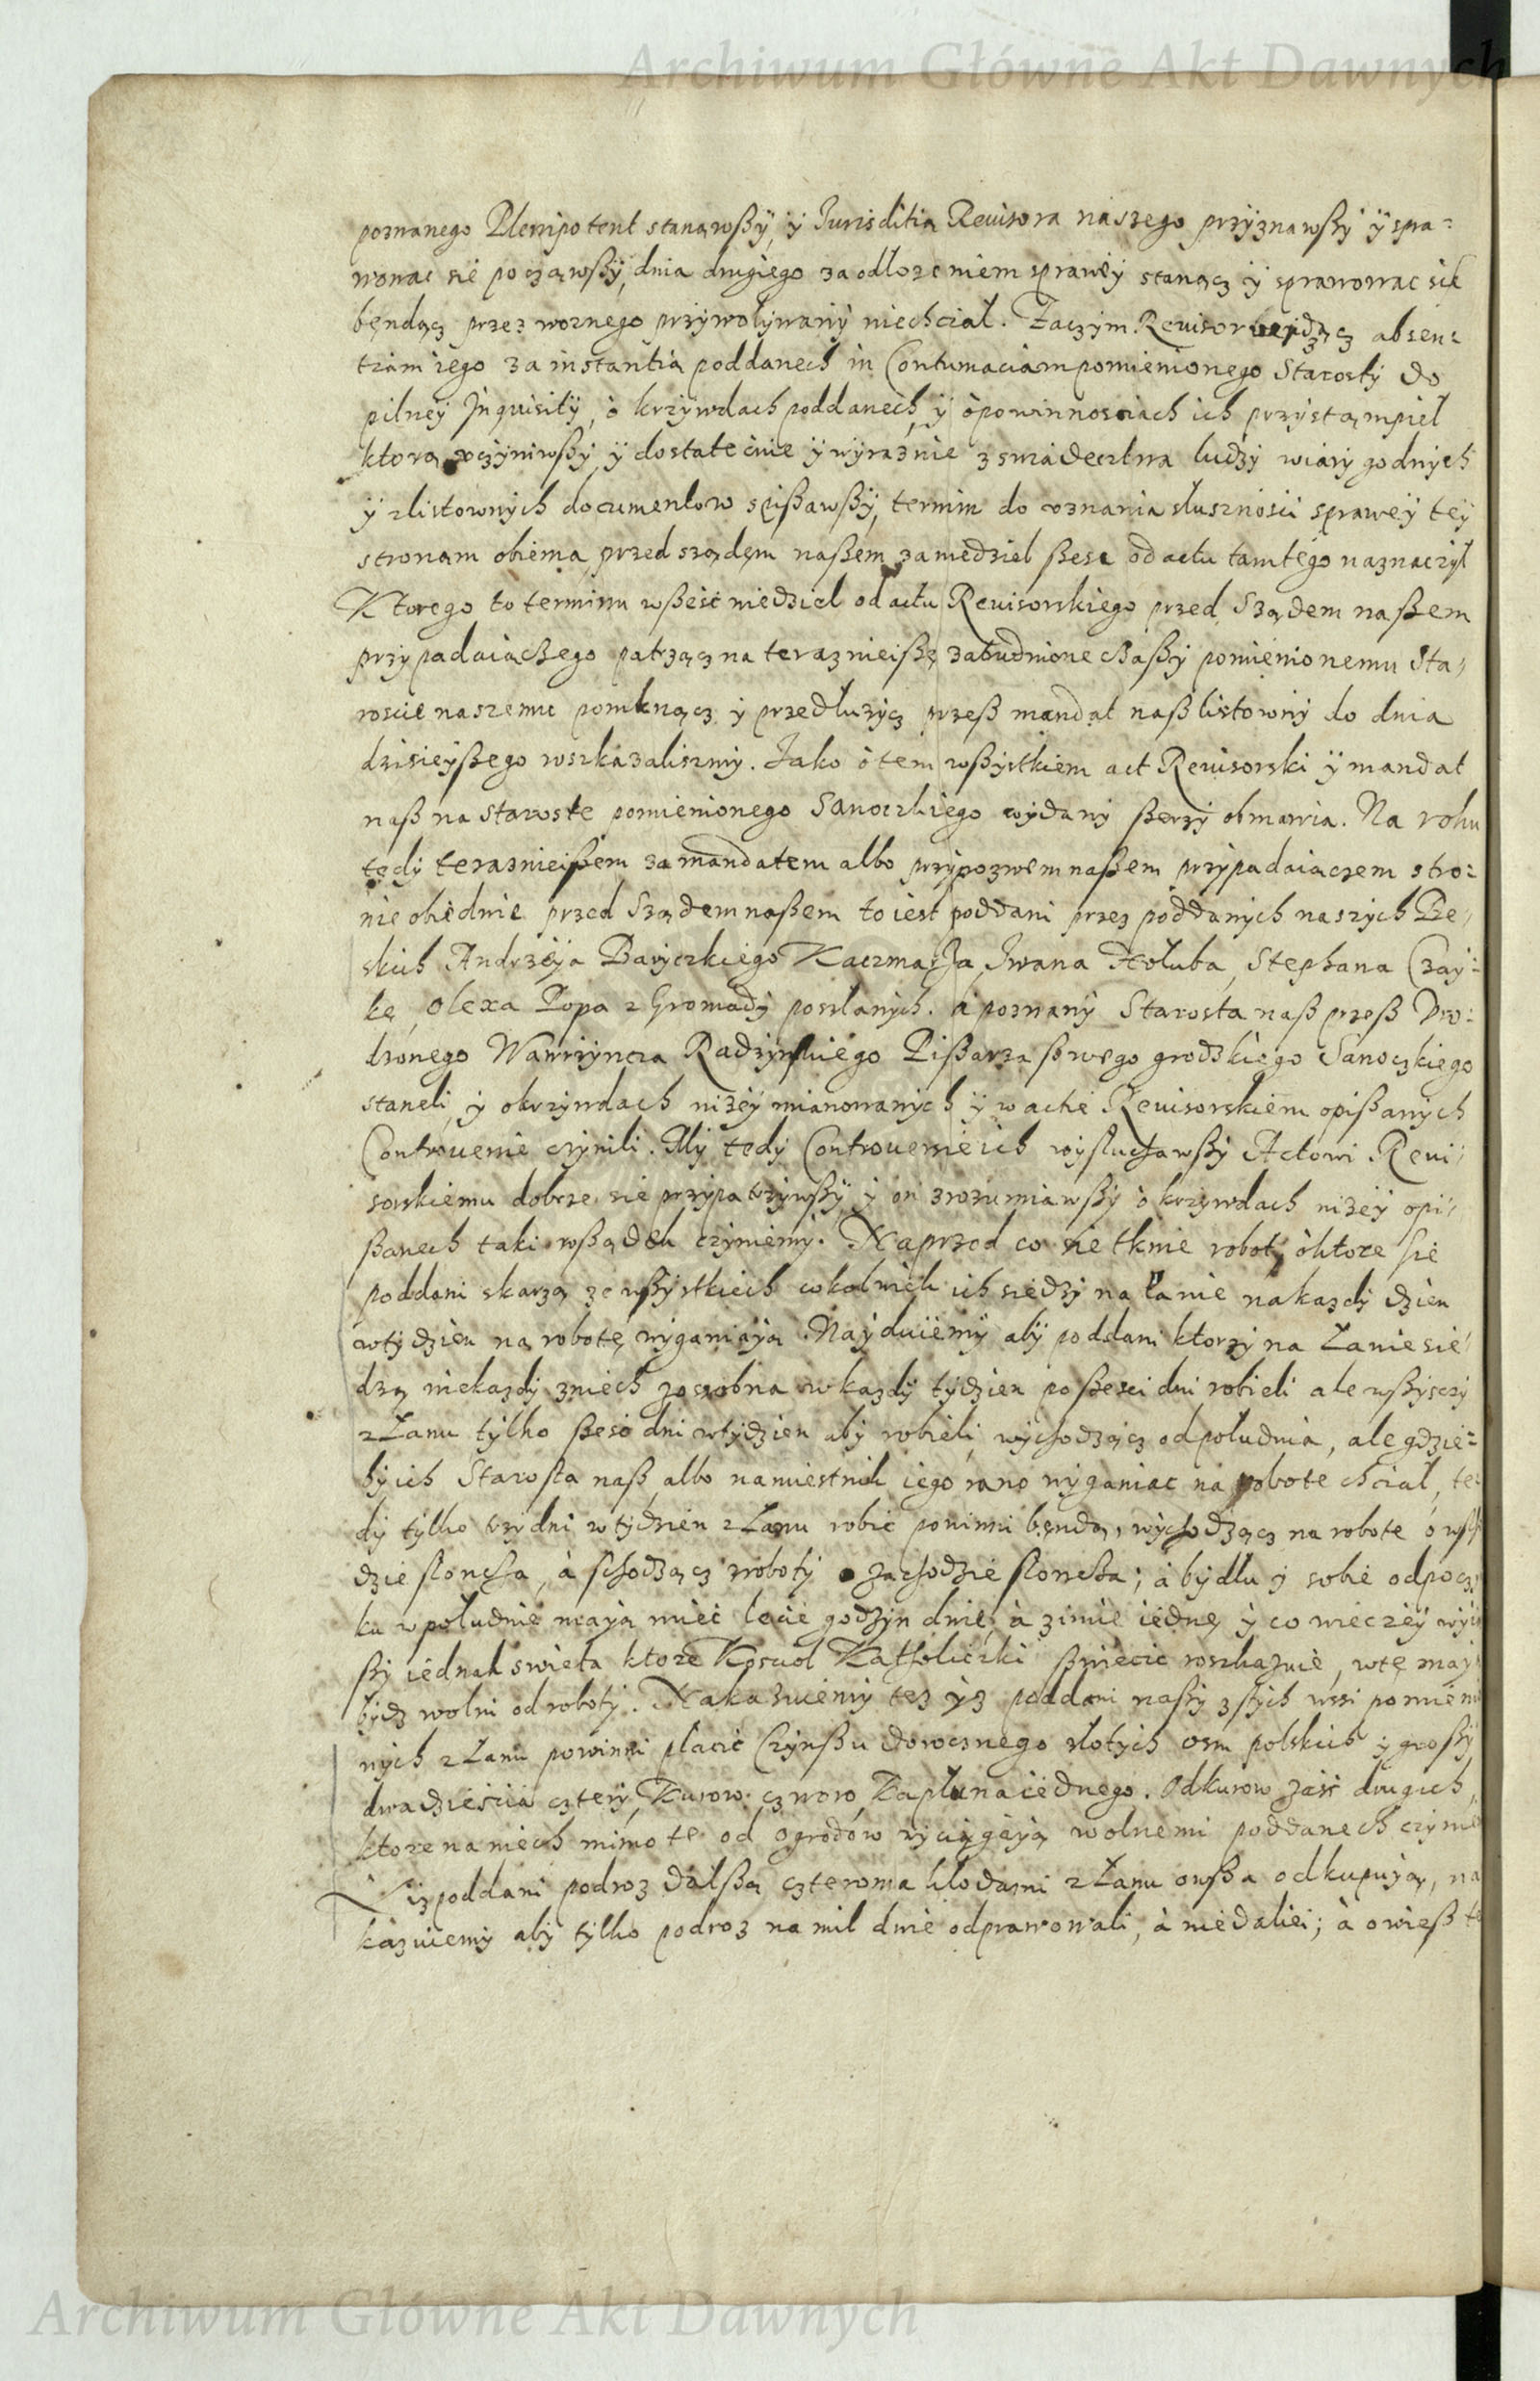 Archiwum Główne Akt Dawnych
poznanego Plenipotent stanąwßÿ, ÿ Jurisditią Reuisora naszego przÿznawßÿ ÿ spra=
wowac sie począwßÿ, dnia drugiego za odłozeniem sprawëÿ stanącz ÿ sprawowac sie
będącz przez woznego przÿwoływanÿ niechciał. Zaczÿm Reuisor widzącz absen=
tiam iego za instantią poddanech in Contumaciam pomienionego Starostÿ do
pilneÿ Inquisitÿ, ò krzÿwdach poddanech, ÿ òpowinnosciach ich przÿstąmpieł
ktorą uczÿniwßÿ ÿ dostatecnie ÿ wÿraznie z swiadectwa ludzÿ wiarÿ godnÿch
ÿ z listownÿch documentow spißawßÿ, termin do uznania słusznosci spraweÿ teÿ
stronam obiema przed sządem naßem za niedziel ßesc od actu tamtego naznaczÿł
Ktorego to terminu w ßesc niedziel od actu Reuisorskiego przed Sządem naßem
przÿpadaiączego patrzącz na terazniejße zatrudnione czaßÿ pomienionemu Sta=
roscie naszemu pomknącz ÿ przedłuzÿcz przeß mandat naß listownÿ do dnia
dzisieÿßego wszkazaliszmÿ. Jako ò tem wßÿstkiem act Reuisorski ÿ mandat
naß na Staroste pomienionego Sanoczkiego wÿdanÿ ßerzÿ obmawia. Na roku
tedÿ teraznieißem za mandatem albo przÿpozwem naßem przÿpadaiaczem stro=
nie obiedwie przed Sządem naßem to iest poddani przez poddanÿch naszÿch Ze=
skich Andrzeÿa Barÿczkiego Kaczmarza, Jwana Hołuba, Stephana Czaÿ=
kę, Olexa Popa z Gromadÿ posłanÿch. à poznanÿ Starosta naß przeß Vro=
dzonego Wawrzÿncza Radzÿnskiego Pißarza ßwego grodzkiego Sanoczkiego
staneli, ÿ o krzÿwdach nizeÿ mianowanÿch ÿ w actie Reuisorskiem opißanÿch
Controuersie czÿnili. Mÿ tedÿ Controuersie ich wÿsłuchawßÿ Actowi Reui=
sorskiemu dobrze sie przÿpatrzÿwßÿ, ÿ on zrozumiawßÿ ò krzÿwdach nizeÿ opi=
ßanech taki rossądek czÿniemÿ. Naprzod co sie tknie robot, ò ktore sie
poddani skarzą ze wßÿstkiech cokolwiek ich siedzÿ na łanie na kazdÿ dzien
w tÿdzien na robotę wÿganiaÿą. Naÿduiemÿ abÿ poddani ktorzÿ na Łanie sie=
dzą niekazdÿ zniech zosobna w kazdÿ tÿdzien po ßesci dni robieli ale wßÿsczÿ
z Łanu tÿlko ßesc dni w tÿdzien abÿ robieli, wÿchodzącz od południa, ale gdzie=
bÿ ich Starosta naß albo namiestnik iego rano wÿganiac na robote chciał, te=
dÿ tÿlko trzÿ dni w tÿdzien z Łanu robic powinni będą, wÿchodzącz na robote o wß
dzie słoncza, à schodzącz z robotÿ o zachodzie słoncza; à bÿdłu ÿ sobie odpocz
ku w południe maÿą miec lecie godzÿn dwie, à zimie iednę ÿ co wieczeÿ wÿ
ßÿ iednak swieta ktore Koscioł Katholiczki ßwiecic roszkazuie, w te maÿ
bÿdz wolni od robotÿ. Nakazuiemÿ tez ÿz poddani naßÿ z tÿch wssi pomieni
nÿch z Łanu powinni płacic Czÿnßu dorocznego złotÿch osm polskich ÿ großÿ
dwadziescia czterÿ, Kurow czworo, Kapłuna iednego. Od kurow zasz drugich,
ktore na niech mimo te od ogrodow wÿcięgaÿą wolnemi poddanech czÿnie
Iz poddani podroz dalßą czteroma kłodami z Łanu owßa odkupuÿą, na
kazuiemÿ abÿ tÿlko podroz na mil dwie odprawowali, à niedaliei; à owieß te
Archiwum Główne Akt Dawnych